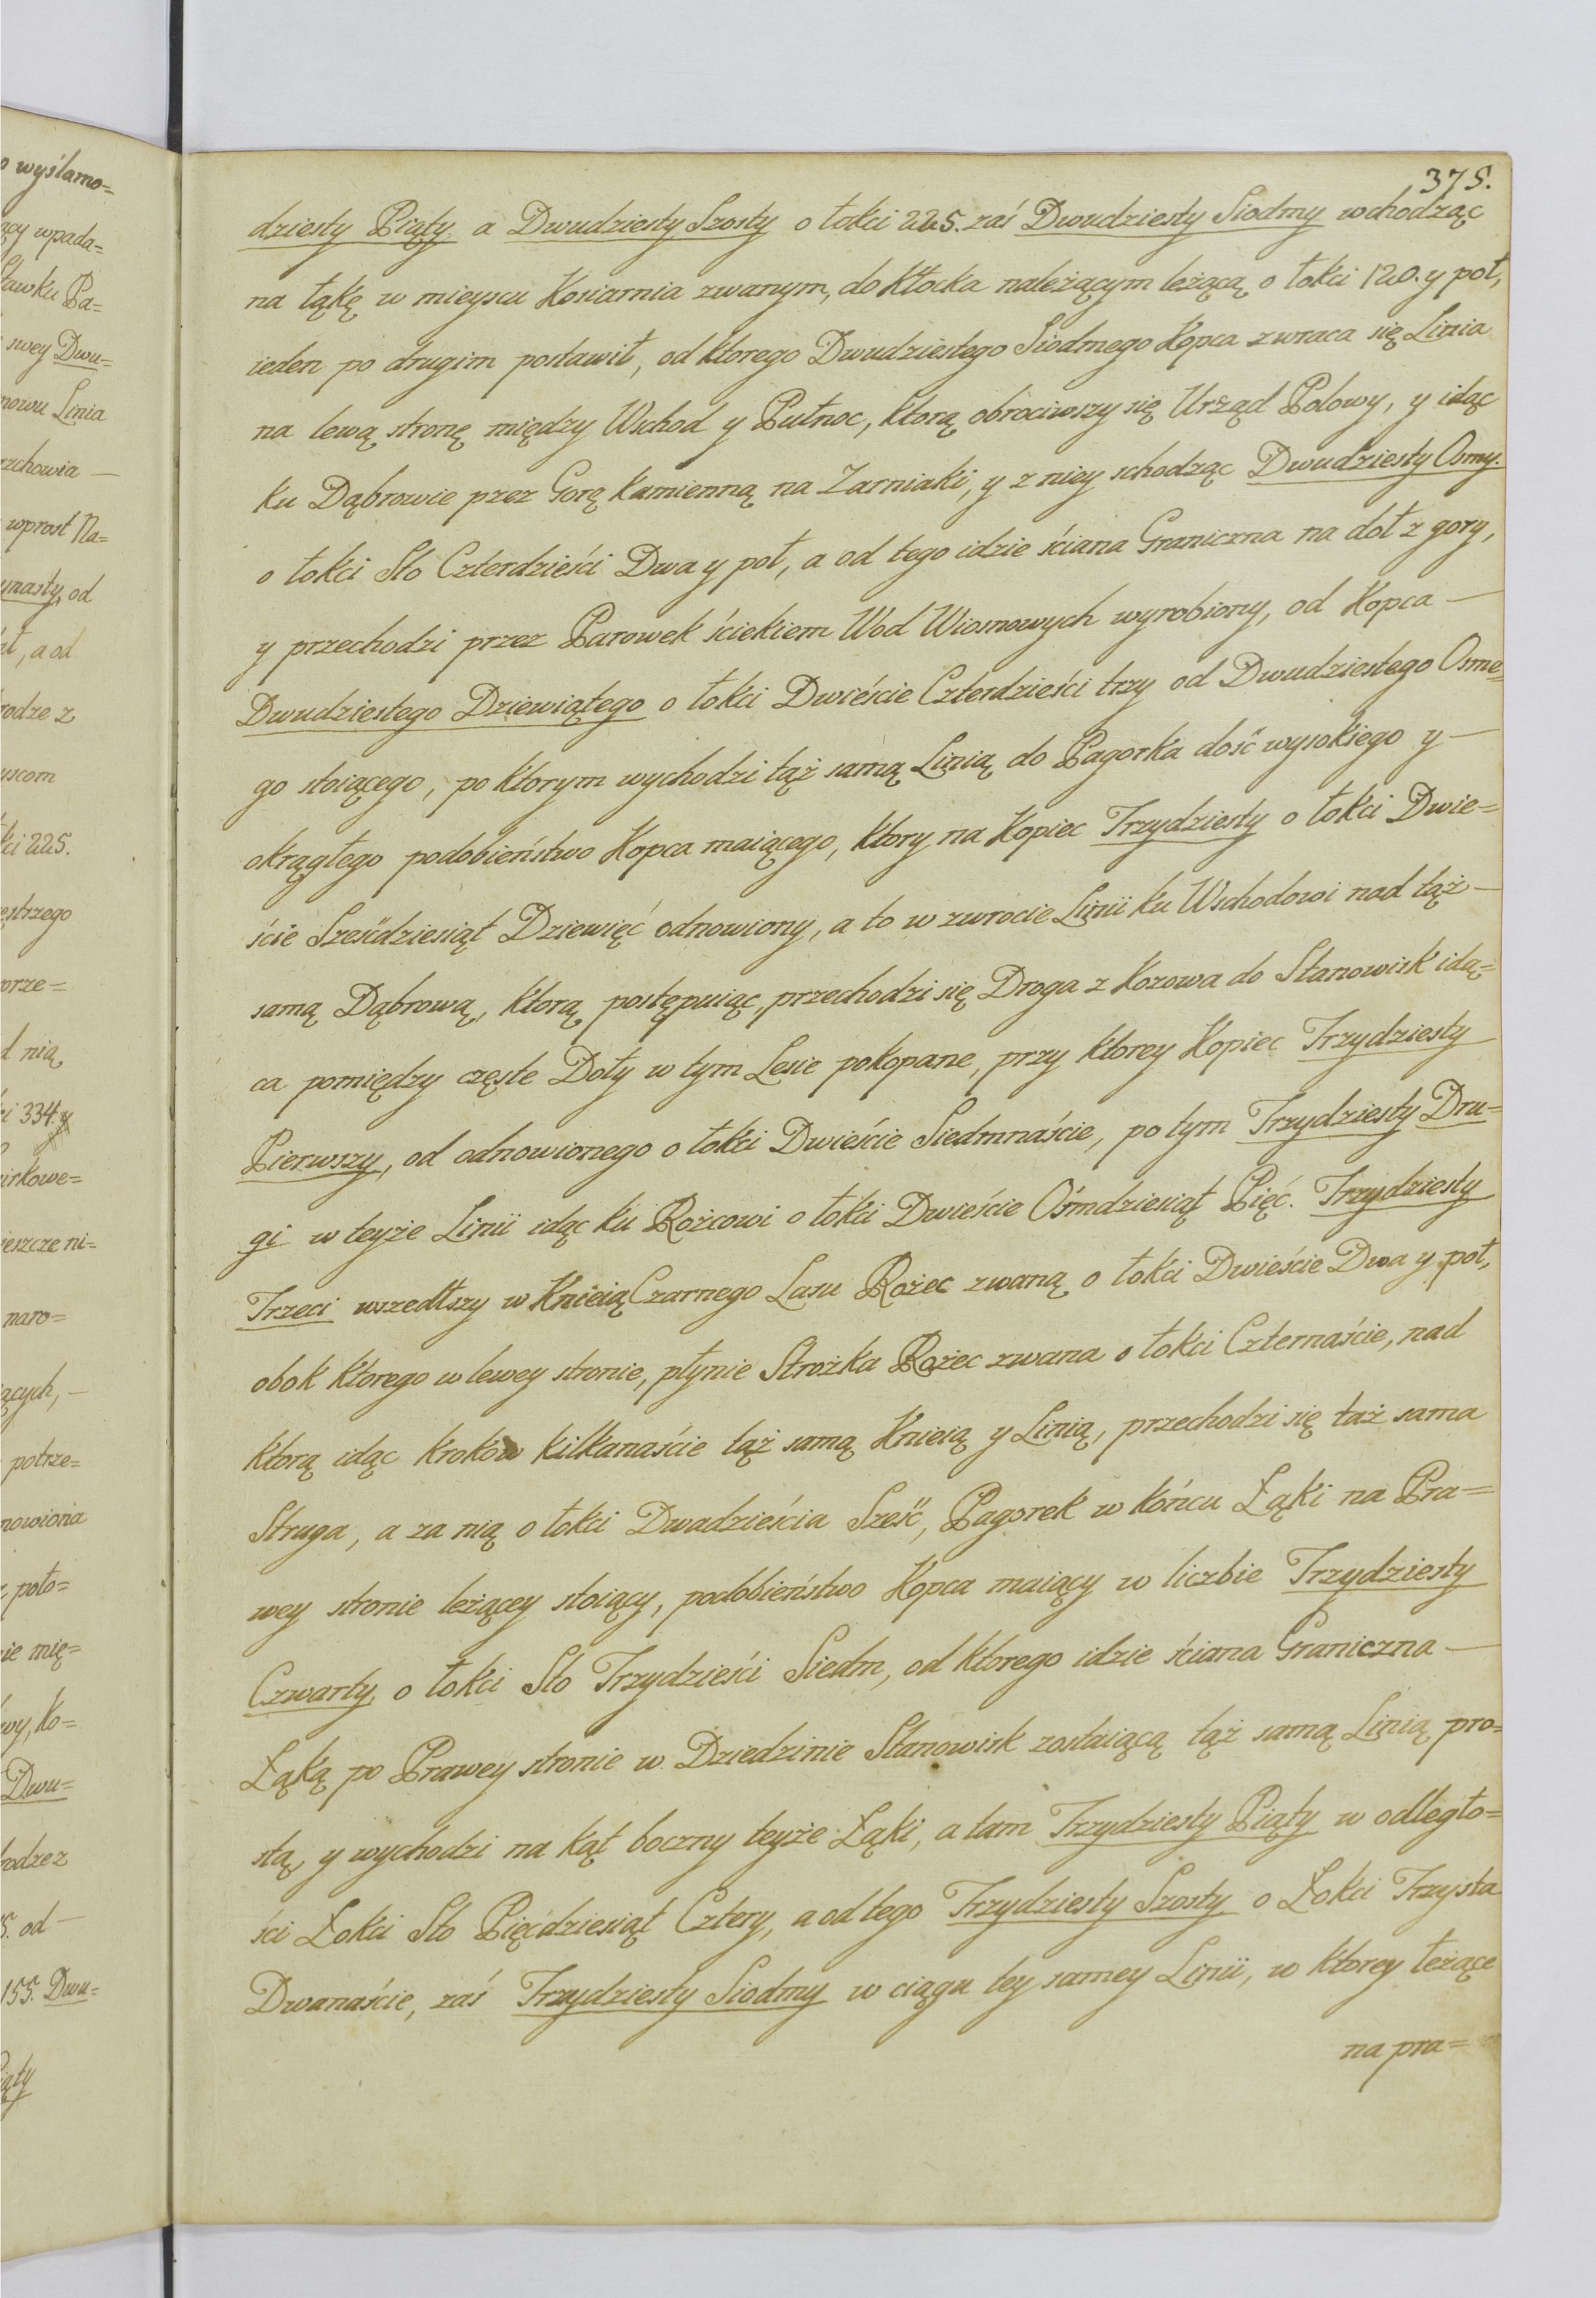 375.
dziesty Piąty a Dwudziesty Szosty o łokci 225. zaś Dwudziesty Siodmy wchodząc
na łąkę w mieyscu Kosiarnia zwanym, do Kłocka należącym leżącą o łokci 120. y poł,
ieden po drugim postawił, od ktorego Dwudziestego Siodmego Kopca zwraca się Linia
na lewą stronę między Wschod y Pułnoc, ktorą obrociwszy się Urząd Polowy, y idąc
ku Dąbrowie przez Gorę kamienną na Zarniaki, y z niey schodząc Dwudziesty Osmy.
o łokci Sto Czterdzieści Dwa y poł, a od tego idzie ściana Graniczna na doł z gory,
y przechodzi przez Parowek ściekiem Wód Wiosnowych wyrobiony, od Kopca —
Dwudziestego Dziewiątego o łokci Dwieście Czterdzieści trzy od Dwudziestego Osme=
go stoiącego, po ktorym wychodzi tąż samą Linią do Pagorka dość wysokiego y —
okrągłego podobieństwo Kopca maiącego, ktory na Kopiec Trzydziesty o łokci Dwie=
ście Sześćdziesiąt Dziewięć odnowiony, a to w zwrocie Linii ku Wschodowi nad tąż —
samą Dąbrową, ktorą postępuiąc, przechodzi się Droga z Kozowa do Stanowisk idą=
ca pomiędzy częste Doły w tym Lesie pokopane, przy ktorey Kopiec Trzydziesty
Pierwszy, od odnowionego o łokci Dwieście Siedmnaście, po tym Trzydziesty Dru=
gi w teyże Linii idąc ku Rożcowi o łokci Dwieście Ośmdziesiąt Pięć. Trzydziesty
Trzeci wszedłszy w Knieią Czarnego Lasu Rożec zwaną o łokci Dwieście Dwa y poł,
obok ktorego w lewey stronie, płynie Strożka Rożec zwana o łokci Czternaście, nad
ktorą idąc kroków kilkanaście tąż samą Knieią y Linią, przechodzi się taż sama
Struga, a za nią o łokci Dwadzieścia Sześć, Pagorek w końcu Łąki na Pra=
wey stronie leżącey stoiący, podobieństwo Kopca maiący w liczbie Trzydziesty
Czwarty o łokci Sto Trzydzieści Siedm, od ktorego idzie ściana Graniczna —
Łąką po Prawey stronie w Dziedzinie Stanowisk zostaiącą tąż samą Linią pro=
stą, y wychodzi na kąt boczny teyże Łąki, a tam Trzydziesty Piąty w odległo=
ści Łokci Sto Pięćdziesiąt Cztery, a od tego Trzydziesty Szosty o Łokci Trzysta
Dwanaście, zaś Trzydziesty Siodmy w ciągu tey samey Linii, w ktorey leżące
na pra=